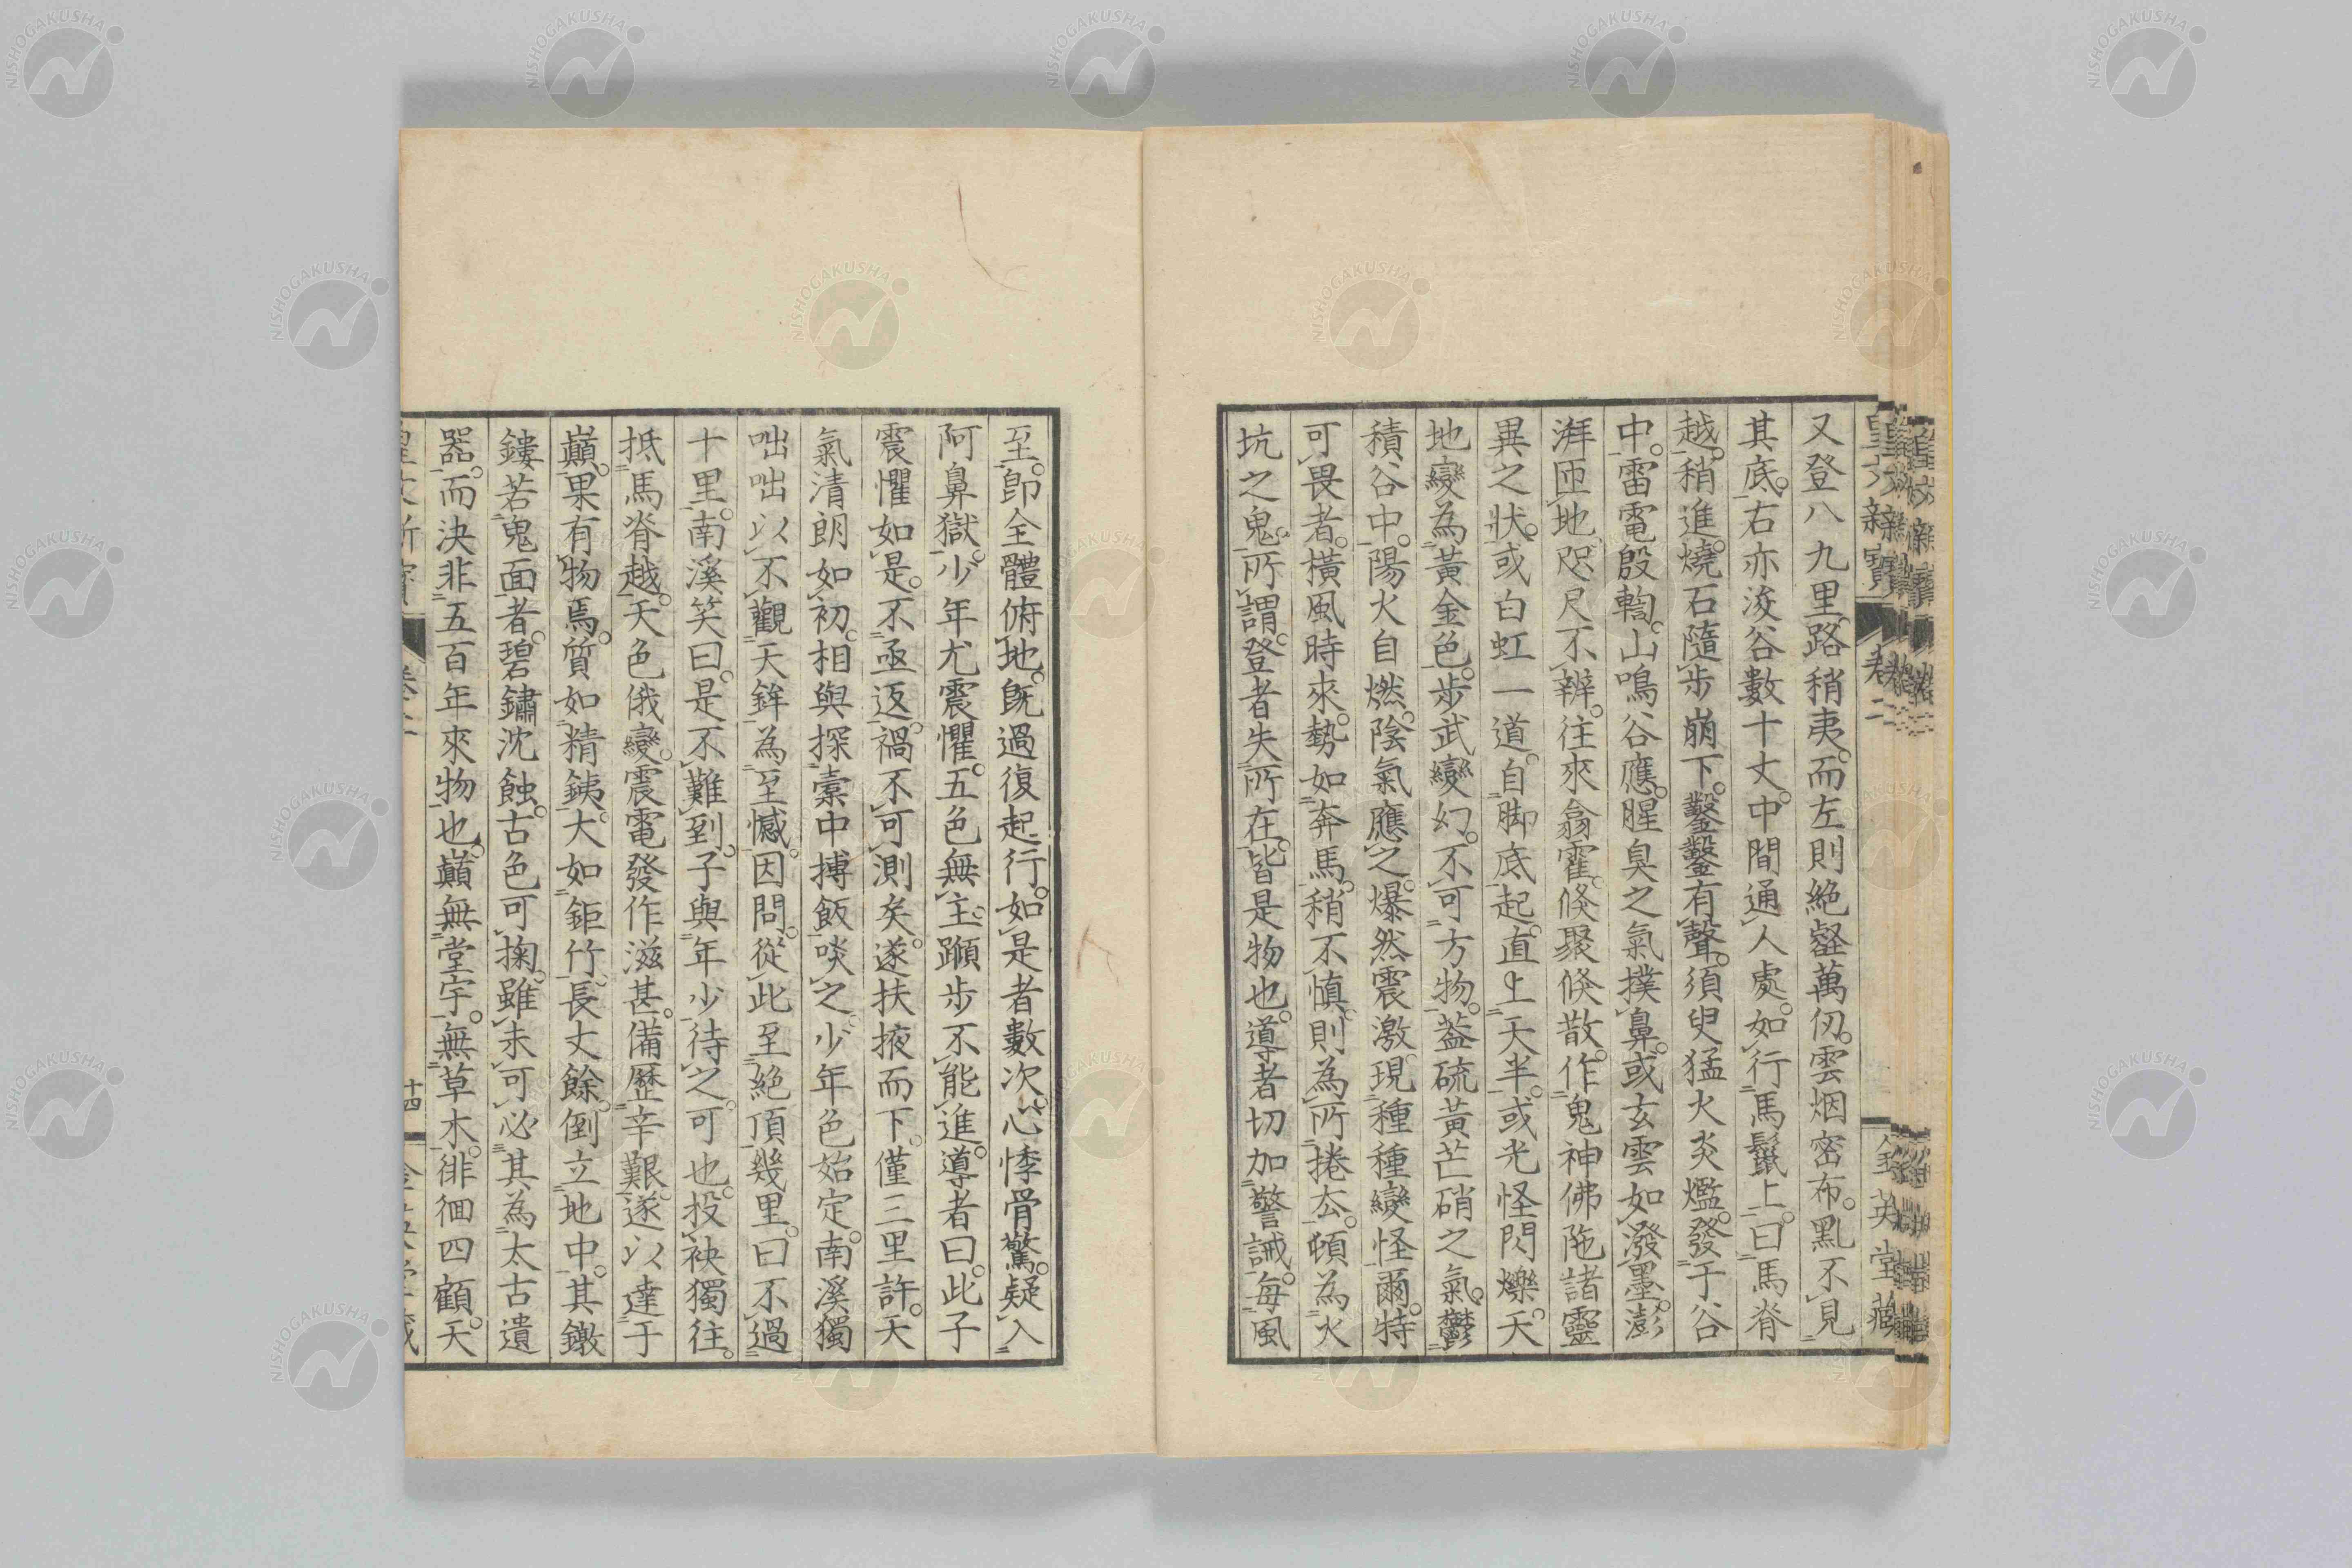 又登八九里。路稍夷。而左則絶壑萬仭。雲烟密布。黑不見
其底。右亦浚谷數十丈。中間通人處。如行馬鬣上。曰馬脊
越。稍進。燒石隨步崩下。鑿鑿有聲。須臾猛火炎爁。發于谷
中。雷電殷輷。山鳴谷應。腥臭之氣撲鼻。或玄雲如潑墨。澎
湃匝地。咫尺不辨。往來翕霍。倏聚倏散。作鬼神佛陁諸靈
異之狀。或白虹一道。自脚底起。直上天半。或光怪閃爍。天
地變為黃金色。步武變幻。不可方物。葢硫黃芒硝之氣。鬱
積谷中。陽火自燃。陰氣應之。爆然震激。現種種變怪爾。特
可畏者。橫風時來。勢如奔馬。稍不慎。則為所捲去。頓為火
坑之鬼。所謂登者失所在。皆是物也。導者切加警誡。每風
至。卽全體俯地。旣過復起行。如是者數次。心悸骨驚。疑入
阿鼻獄。少年尤震懼。五色無主。蹰步不能進。導者曰。此子
震懼如是。不亟返。禍不可測矣。遂扶掖而下。僅三里許。天
氣清朗如初。相與探橐中搏飯啖之。少年色始定。南溪獨
咄咄以不觀天鉾為至憾。因問。從此至絶頂幾里。曰不過
十里。南溪笑曰。是不難到。子與年少待之可也。投袂獨往。
抵馬脊越。天色俄變。震電發作滋甚。備歷辛艱。遂以達于
巔。果有物焉。質如精銕。大如鉅竹。長丈餘。倒立地中。其鐓
鏤若鬼面者。碧鏽沈蝕。古色可掬。雖未可必其為太古遺
器。而決非五百年來物也。巔無堂宇。無草木。徘徊四顧。天
卷二
十四
金英堂藏